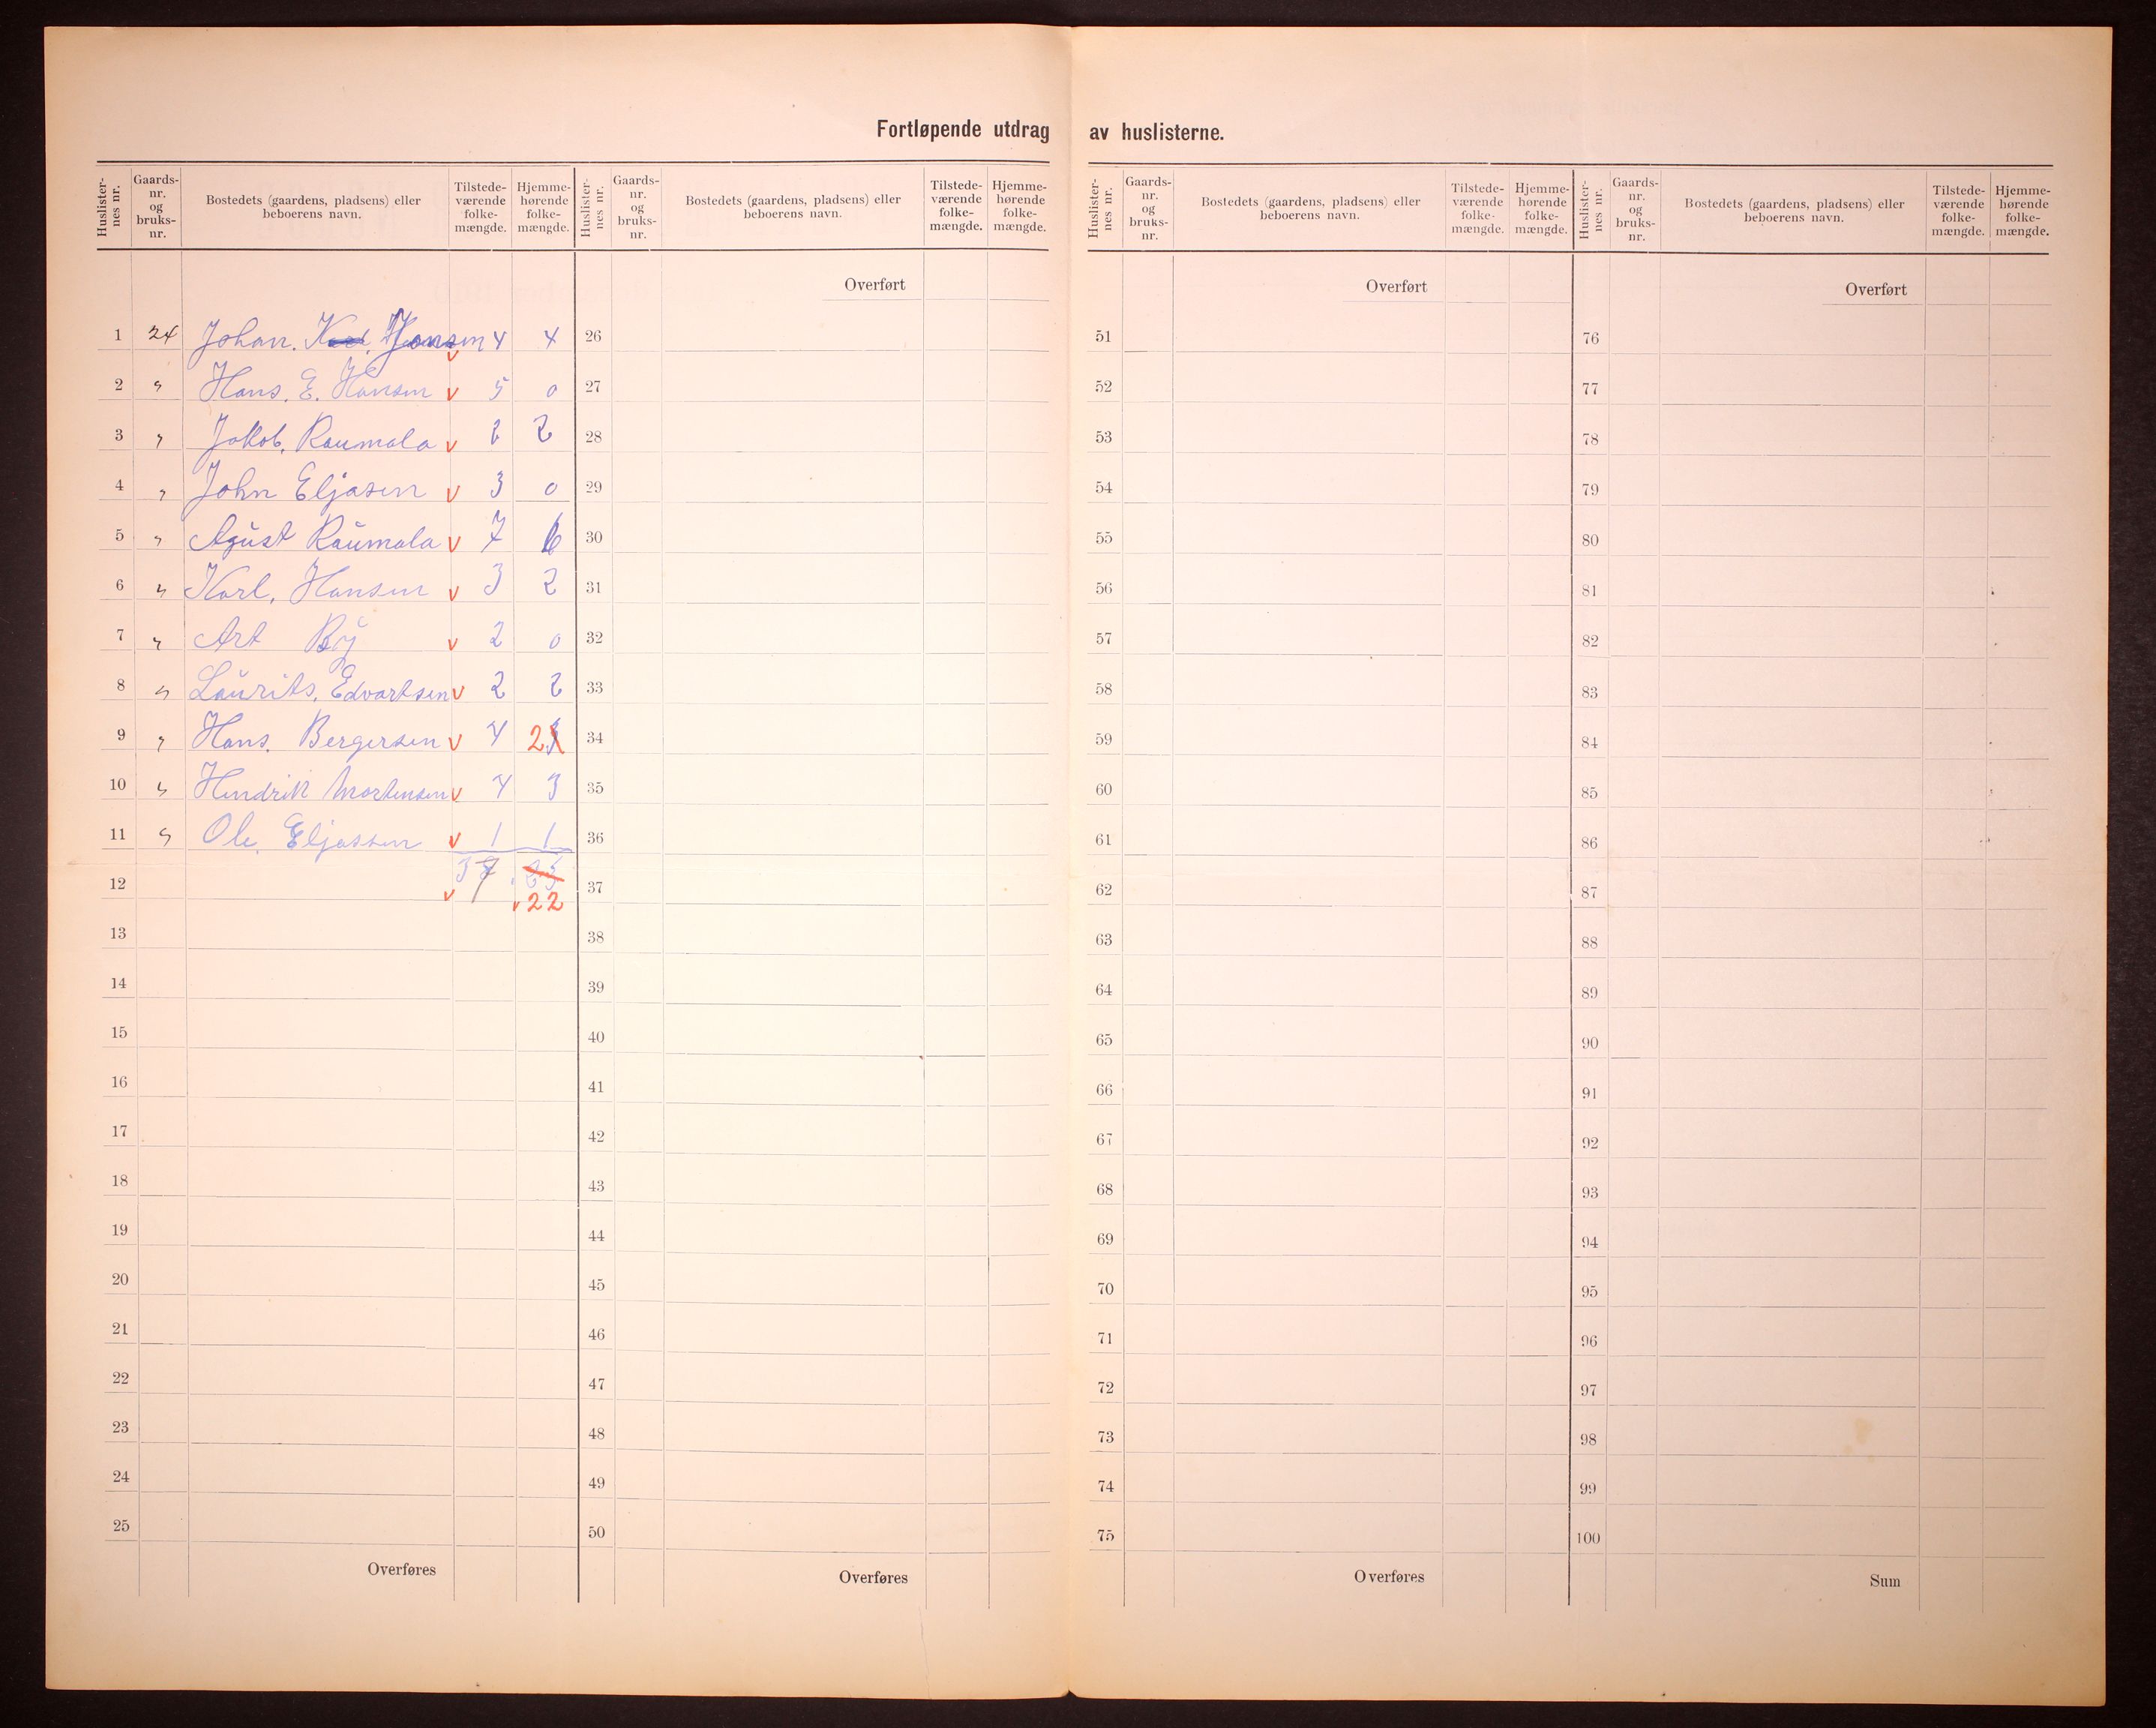 Fortløpende utdrag av huslisterne.
Huslister-nes nr. Gaards-nr. og bruks-nr. Bostedets (gaardens, pladsens) eller beboerens navn. Tilstede-værende folke-mængde. Hjemme-hørende folke-mængde.
1 24 Johan. Hansen 4 4
2 " Hans. E. Hansen v 5 0
3 " Jakob. Raumala v 2 2
4 " John Eljasen v 3 0
5 " Agŭst Raŭmala v 7 6
6 " Karl. Hansen v 3 2
7 " Art By v 2 0
8 " Laŭrits. Edvartsen v 2 2
9 " Hans. Bergersen v 4 2
10 " Hendrik Mortensen v 4 3
11 " Ole. Eljassen v 1 1
12 v 37 23
v 22
13
14
15
16
17
18
19
20
21
22
23
24
25
Overføres
Huslister-nes nr. Gaards-nr. og bruks-nr. Bostedets (gaardens, pladsens) eller beboerens navn. Tilstede-værende folke-mængde. Hjemme-hørende folke-mængde.
Overført
26
27
28
29
30
31
32
33
34
35
36
37
38
39
40
41
42
43
44
45
46
47
48
49
50
Overføres
Huslister-nes nr. Gaards-nr. og bruks-nr. Bostedets (gaardens, pladsens) eller beboerens navn. Tilstede-værende folke-mængde. Hjemme-hørende folke-mængde.
Overført
51
52
53
54
55
56
57
58
59
60
61
62
63
64
65
66
67
68
69
70
71
72
73
74
75
Overføres
Huslister-nes nr. Gaards-nr. og bruks-nr. Bostedets (gaardens, pladsens) eller beboerens navn. Tilstede-værende folke-mængde. Hjemme-hørende folke-mængde.
Overført
76
77
78
79
80
81
82
83
84
85
86
87
88
89
90
91
92
93
94
95
96
97
98
99
100
Sum